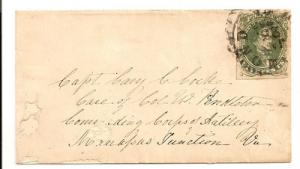 Capt. Cary C. Cocke
Care of Col. W. Pendleton
Commanding Corps of Artillery
Manassas Junction Va